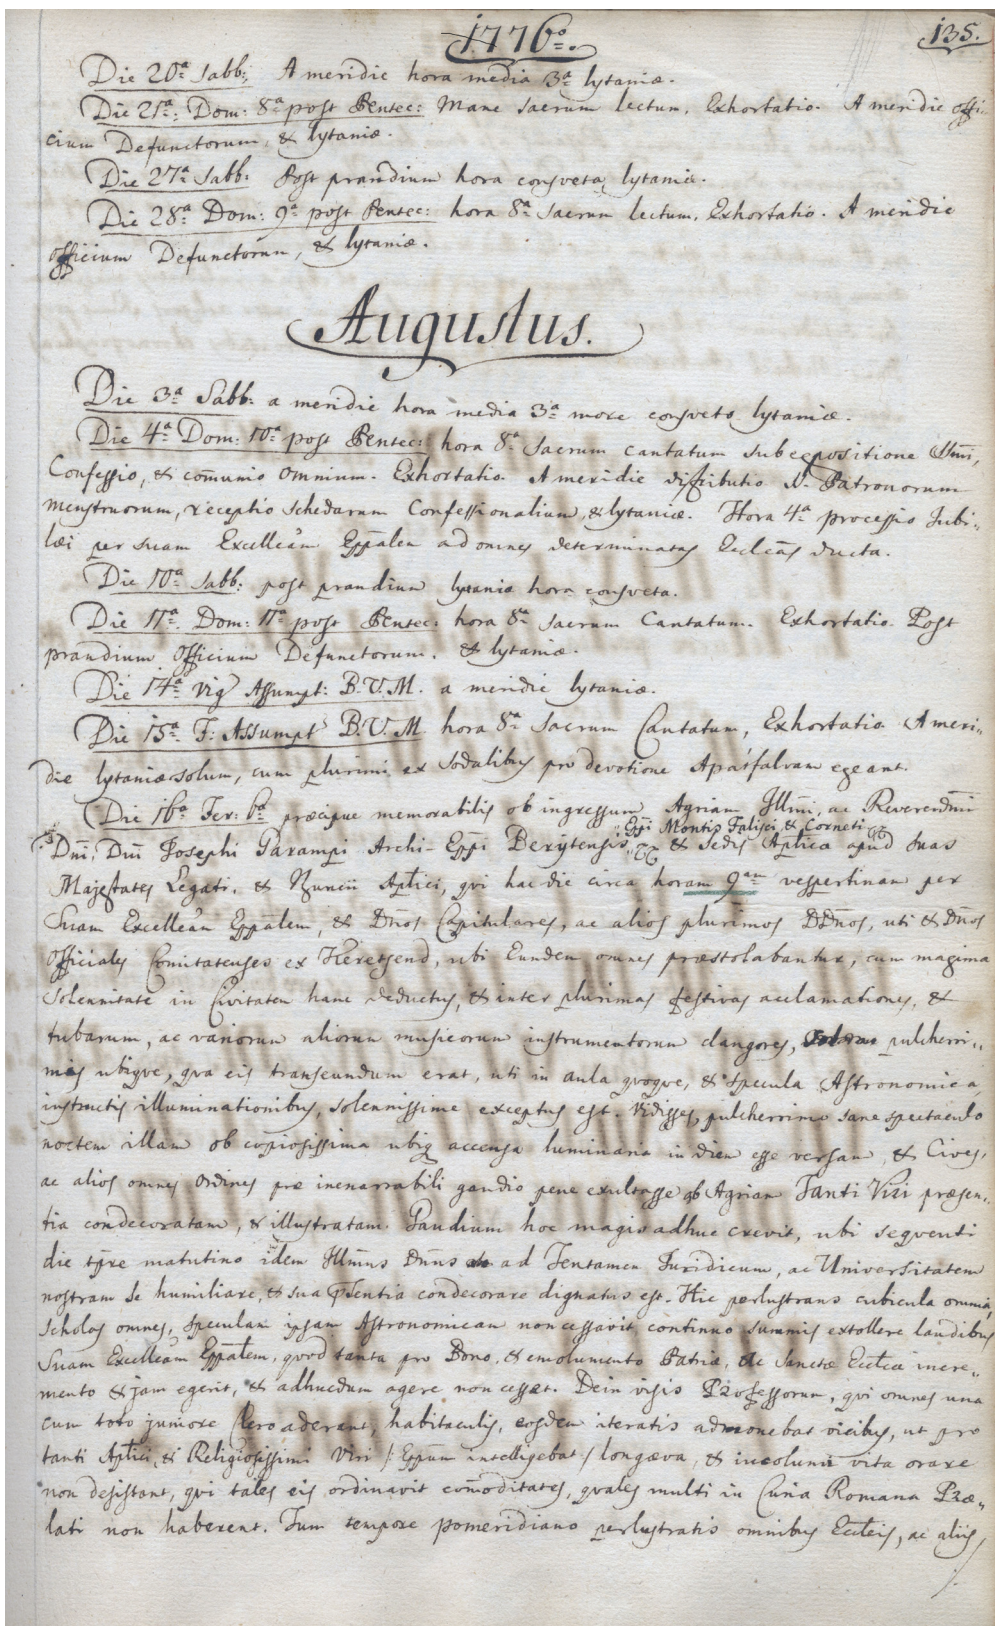 1776°.
135.
Die 20ª Sabb: A meridie hora media 3ª lytaniæ.
Die 21ª: Dom: 8ª post Pentec: Mane Sacrum lectum, Exhortatio. A meridie offi„
cium Defunctorum, & lytaniæ.
Die 27ª Sabb. Post prandium hora consveta lytaniæ.
Die 28ª Dom: 9ª post Pentec: hora 8ª Sacrum lectum, Exhortatio. A meridie
officium Defunctorum, & lytaniæ.
Augustus.
Die 3ª Sabb: a meridie hora media 3ª more consveto lytaniæ.
Die 4ª Dom: 10ª post Pentec: hora 8ª Sacrum cantatum sub expositione SSmi,
Confessio, & com̄unio omnium. Exhortatio. A meridie distributio SS. Patronorum
menstruorum, receptio schedarum Confessionalium, & lytaniæ. Hora 4ª processio Jubi„
læi per suam Excelleām Eppālem ad omnes determinatas Eccleās ducta.
Die 10ª Sabb: post prandium lytaniæ hora consveta.
Die 11ª Dom: 11ª post Pentec: hora 8ª Sacrum Cantatum. Exhortatio. Post
prandium officium Defunctorum, & lytaniæ.
Die 14ª Vig Assumpt: B.V.M. a meridie lytaniæ.
Die 15ª F: Assumpt B.V.M. hora 8ª Sacrum Cantatum, Exhortatio. A meri„
die lytaniæ solum, cum plurimi ex Sodalibus pro devotione Apátfalvam egeant.
Die 16ª Fer: 6ª præcipue memorabilis ob ingressum Agriam Illm̄i, ac Reverendm̄i
Dnī, Dnī Josephi Garampi Archi-Eppī Berytensis, Eppī Montis Falisci, & Corneti & Sedis Aplicæ apud suas
Majestates Legati, & Nuncii Aplici, qvi hac die circa horam 9am vespertinam per
Suam Excelleām Eppālem, & Dnos Capitulares, ac alios plurimos DDnos, uti & Dnos
Officiales Comitatenses ex Keretsend, ubi Eundem omnes præstolabantur, cum magima
solennitate in Civitatem hanc deductus, & inter plurimas festivas acclamationes, &
tubarum, ac variorum aliorum musicorum instrumentorum clangores, pulcherri„
mis ubiqve, qva eis transeundum erat, uti in aula qvoqve, & specula Astronomica
instructis illuminationibus, solennissime exceptus est. Vidisses pulcherrimo sane spectaculo
noctem illam ob copiosissima ubiq accensa luminaria in diem esse versam, & Cives,
ac alios omnes ordines præ inenarrabili gaudio pene exultasse ob Agriam Tanti Viri præsen„
tia condecoratam, & illustratam. Gaudium hoc magis adhuc crevit, ubi seqventi
die tp̄re matutino idem Illmus Dnus ad Tentamen Juridicum, ac Universitatem
nostram se humiliare, & sua p̄sentia condecorare dignatus est. Hic perlustrans cubicula omnia,
scholas omnes, speculam ipsam Astronomicam non cessavit continuo summis extollere laudibus
Suam Excelleām Eppālem, qvod tanta pro Bono, & emolumento Patriæ, ac Sanctæ Eccleæ incre„
mento & jam egerit, & adhucdum agere non cesset. Dein visis Professorum, qvi omnes una
cum toto juniore Clero aderant, habitaculis, eosdem iteratis admonebat vicibus, ut pro
tanti Aplici, & Religiosissimi Viri /: Eppum intelligebat :/ longæva, & incolumi vita orare
non desistant, qvi tales eis ordinavit com̄oditates, qvales multi in Curia Romana Præ„
lati non haberent. Tum tempore pomeridiano perlustratis omnibus Eccleis, ac aliis